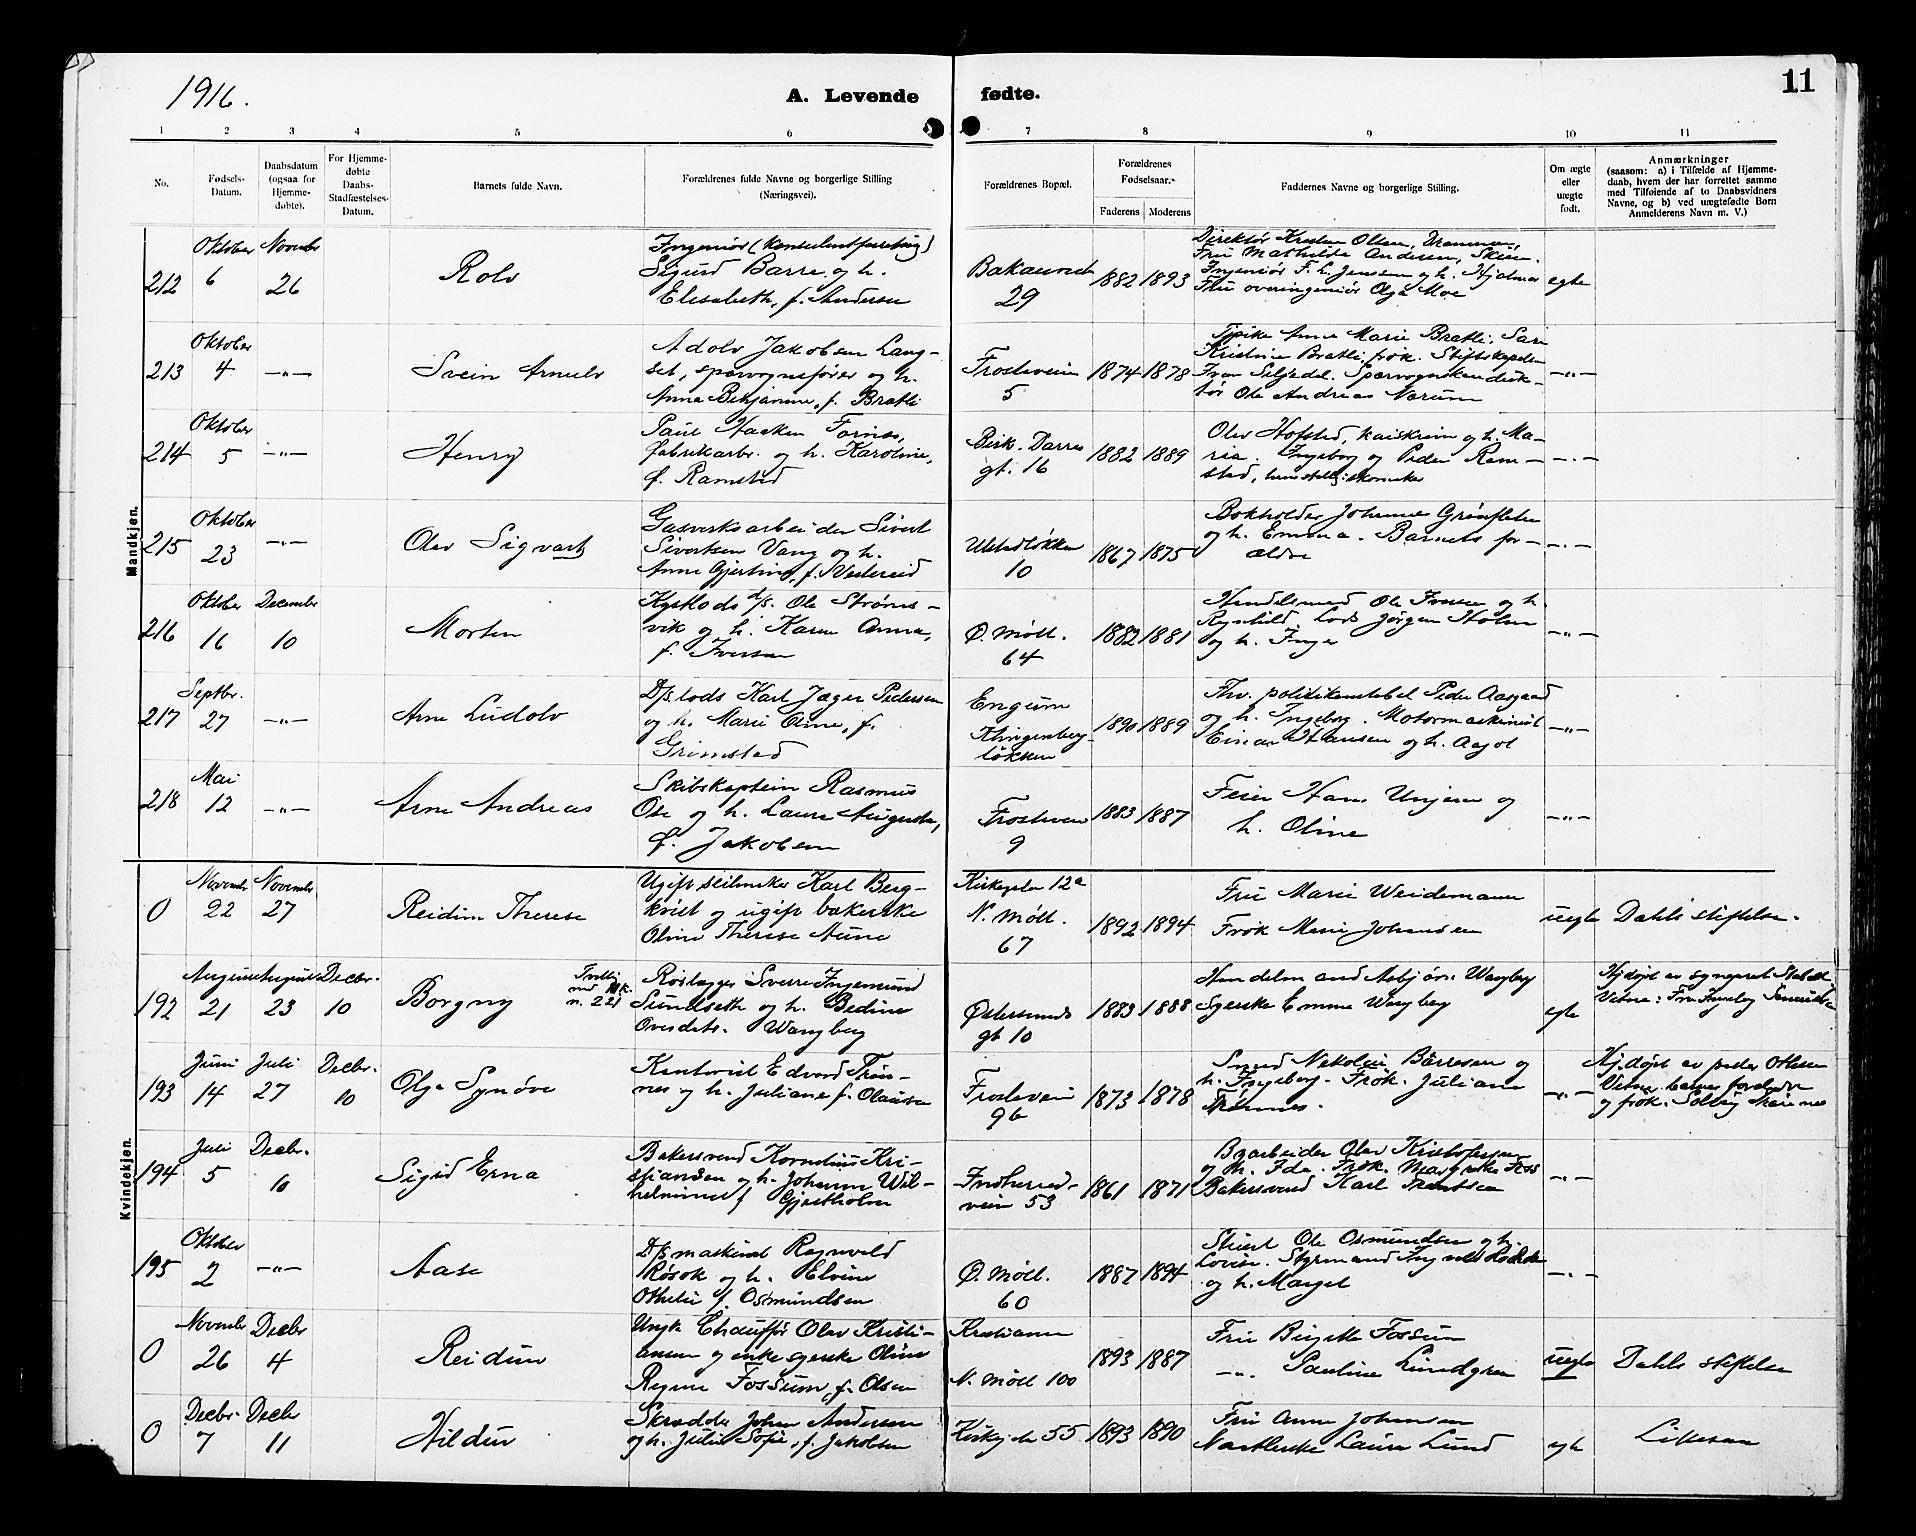 1916.
A. Levende fødte.
11
1 2 3 4 5 6 7 8 9 10 11
No.
Fødsels-
Datum.
Daabsdatum
(ogsaa for
Hjemme-
døbte).
For Hjemme-
døbte
Daabs-
Stadfæstelses-
Datum.
Barnets fulde Navn.
Forældrenes fulde Navne og borgerlige Stilling
(Næringsvei).
Forældrenes Bopæl.
Forældrenes
Fødselsaar.
Faderens Moderens
Faddernes Navne og borgerlige Stilling.
Om ægte
eller
uægte
født.
Anmærkninger
(saasom: a) i Tilfælde af Hjemme-
daab, hvem der har forrettet samme
med Tilføiende af to Daabsvidners
Navne, og b) ved uægtefødte Børn
Anmelderens Navn m. V.)
Mandkjøn.
212
Oktober
6
Novembr
26
Rolv
Ingeniør
Sigurd Barre og h.
Elisabeth, f. Andersen
29
1882 1893
Direktør Kristen Olsen,
Fru Mathilde Andersen, Skien.
Ingeniør F. L. Jenssen og h. Hjelmar
Fru overingeniør Olga Moe
egte
213
Oktober
4
—"—
Svein Arnulv
Adolv Jakobsen Lang-
set, sporvognsfører og h.
Anna Benjamine, f. Bratli
Frostaveien
5
1874 1878
Pike Anne Marie Bratli.
Kristine Bratli, frøk.
Ivar Seljedal. Sporvognskonduk-
tør Ole Andreas Narum
—"—
214
Oktober
5
—"—
Henry
Paul Haaken Fornes,
fabrikarbr. og h. Karoline,
f. Ramstad
gt. 16
1882 1889
Olav Hofstad, og h. Ma-
ria. Ingeborg og Peder Ram-
stad, skomaker
—"—
215
Oktober
23
—"—
Olav Sigvart
Gasverksarbeider Sivert
Sivertsen Vang og h.
Anne Gjertine, f.
Ulstadløkken
10
1867 1875
Bokholder Johnne
og h. Emma. Barnets for-
ældre
—"—
216
Oktober
16
December
10
Morten
Kystlods d/s. Ole Strøms-
vik og h. Karen Anna,
f. Iversen
Ø. Møll.
64
1882 1881
Handelsmand Ole Iversen og h.
Ragnhild. Lods Jørgen Holm
og h. Inger
—"—
217
Septbr.
27
—"—
Arne Ludolv
D/slods Karl Jæger Pedersen
og h. Marie Oline, f.
Grimstad
Engum
Klingenberg-
løkken
1890 1889
Fhv. politikonstabel Peder Aasgaard
og h. Ingeborg. Motormaskinist
Einar Hansen og h. Aagot
—"—
218
Mai
12
—"—
Arne Andreas
Skibskaptein Rasmus
Ose og h. Laura Augusta,
f. Jakobsen
Frostaveien
9
1883 1887
Feier Hans Unjem og
h. Oline
—"—
Kvindekjøn.
0
Novembr
22
Novembr
27
Reidun Therese
Ugift Karl Berg-
kvist og ugift bakerske
Oline Therese Aune
Kirkegaten 12a
N. Møll.
67
1892 1894
Fru Marie Weidemann
Frøk Marie Johansen
uegte
Dahls stiftelse.
192
August
21
August
23
Decbr.
10
Borgny
Tvilling
med
n. 221
Rørlægger Sverre Ingemund
Sundseth og h. Bedine
Wangberg
Østersunds
gt 10
1883 1888
Handelsmand Asbjørn Wangberg
Syerske Emma Wangberg
egte
Hjdøpt av
193
Juni
14
Juli
27
Decbr.
10
Olga Synøve
Kontorist Edvard Trøn-
nes og h. Juliane, f. Olausen
Frostaveien
9b
1873 1878
Smed Nikolai Børresen og
h. Ingeborg. Frøk. Juliane
Trønnes.
—"—
Hj.døpt av peder Ottesen
Vitne barnets forældre
og frøk. Solveig
194
Juli
5
Decbr.
10
Sigrid Erna
Bakersvend Kornelius Kri-
stiansen og h. Johanne Wil-
helmine f Gjestholm
Indherred-
veien 53
1861 1871
Br.arbeider Olav Kristofersen
og h. Ida. Frøk. Margrethe Foss
Bakersvend Karl Frantsen
—"—
195
Oktober
2
—"—
Aase
D/smaskinist Ragnvald
Røsok og h. Elvine
Othelie f. Osmundsen
Ø. Møll.
60
1887 1894
Stuert Ole Osmundsen og h.
Lovise. Styrmand
og h. Margit
—"—
0
Novembr
26
Decbr
4
Reidun
Ungk Chauffør Olav Kristi-
ansen og enke syerske Oline
Regine Fossum, f. Olsen
Kristiania
N. Møll 100
1893 1887
Fru Birgitte Fossum
—"— Pauline Lundgren
uegte
Dahls stiftelse
0
Decbr.
7
Decbr
11
Hildur
Skrædder Johan Andersen
og h. Julie Sofie, f. Jakobsen
Kirkegaten 55
1893 1890
Fru Anna Johansen
Laura Lund
egte